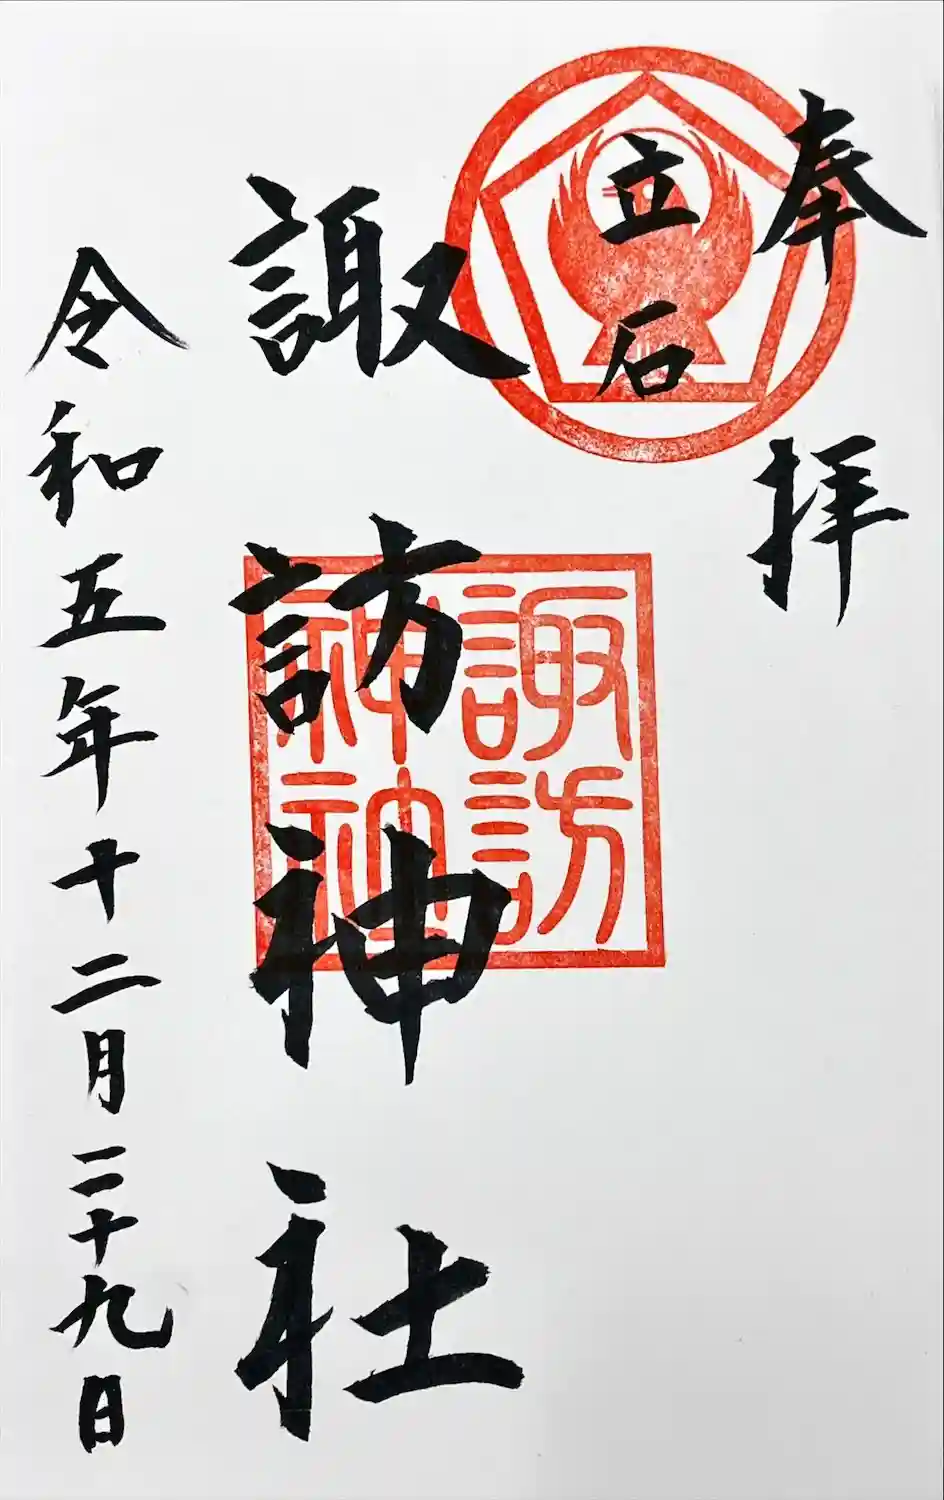 奉拝
立石
諏訪神社
諏訪
神社
令和五年十二月二十九日